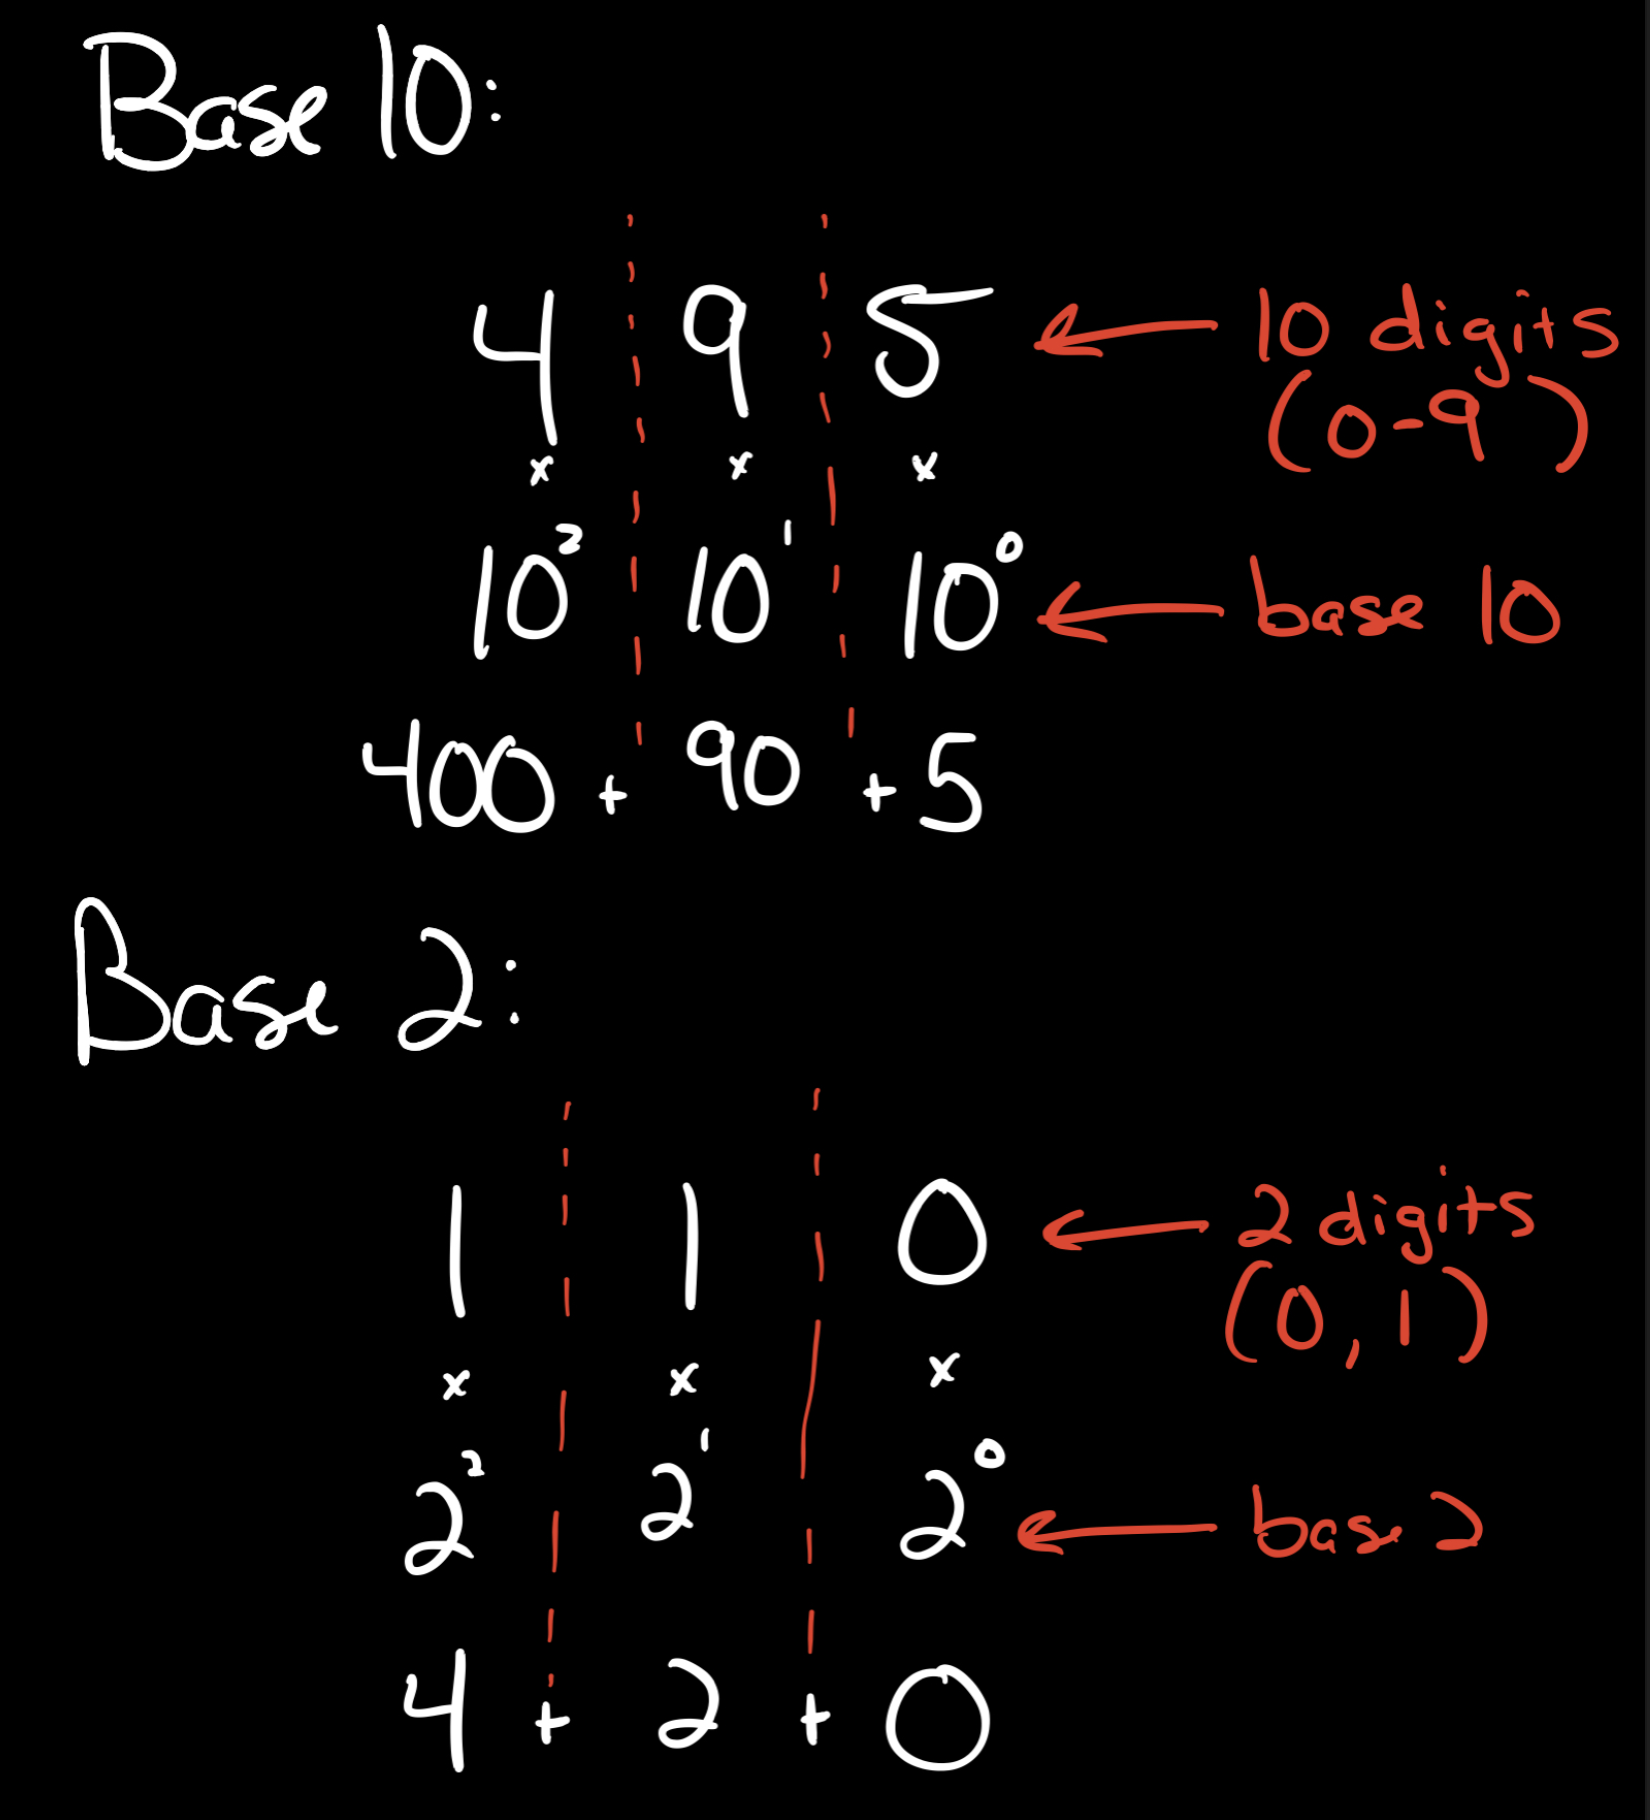 Base 10:
4 9 5 ← 10 digits
(0-9)
x x x
10² 10¹ 10⁰ ← base 10
400 + 90 + 5
Base 2:
1 1 0 ← 2 digits
(0, 1)
x x x
2² 2¹ 2⁰ ← base 2
4 + 2 + 0